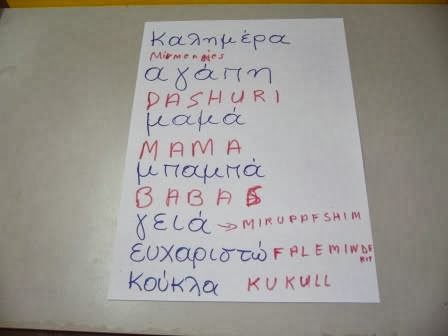 καλημέρα
Mirmenjies
αγάπη
DASHURI
μαμά
MAMA
μπαμπά
BABA
γειά → MIRUPAFSHIM
ευχαριστώ FALEMINDERIT
κούκλα KUKULL